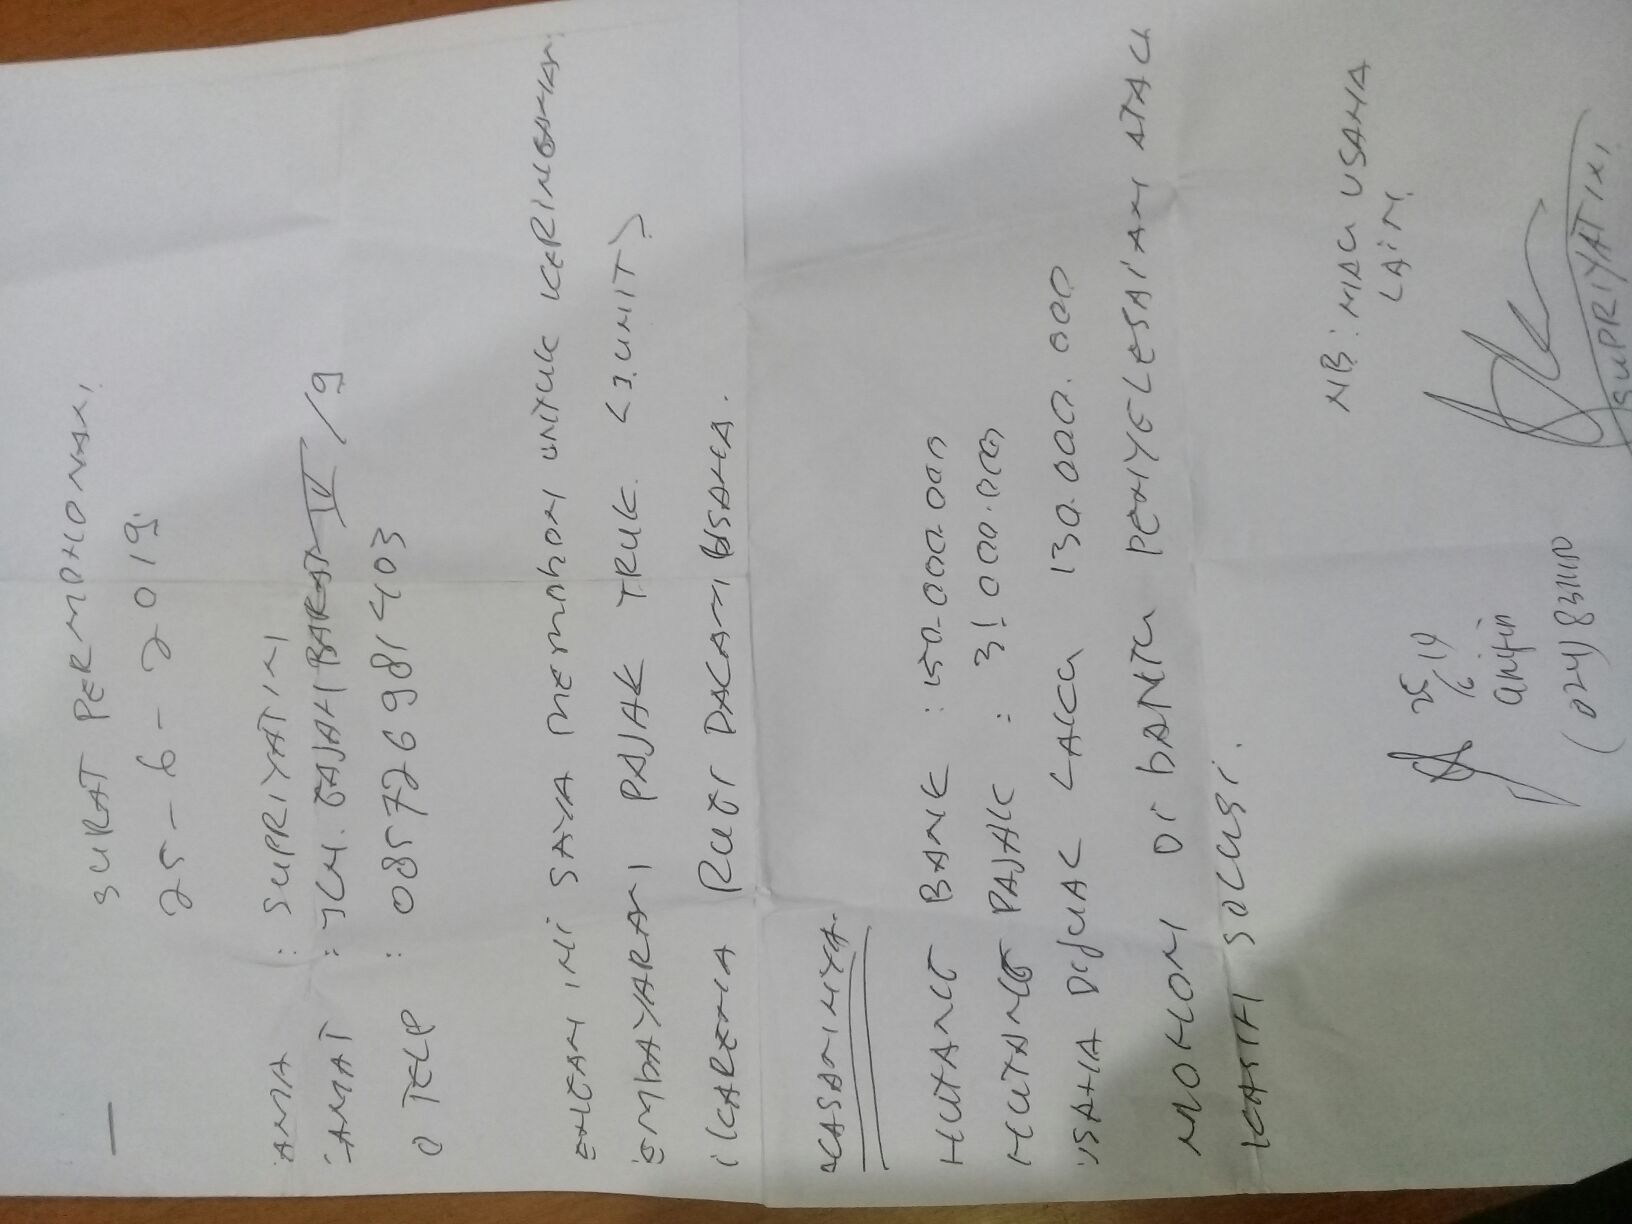 SURAT PERMOHONAN,
25-6-2019.
AMA : SUPRIYATINI
AMAT : JLN. GAJAH BARAT IV/9
O TELP : 085726981403
ENGAN INI SAYA MEMOHON UNTUK KERINGANAN
EMBAYARAN PAJAK TRUK. (2. UNIT)
KARENA RUGI DALAM USAHA.
HUTANG BANK : 150.000.000
HUTANG PAJAK : 31.000.000
USAHA DIJUAL LAKU 130.000.000
MOHON DI BANTU PENYELESAIAN ATAU
KASIH SOLUSI.
NB : MAU USAHA
LAIN
SUPRIYATINI
25/6 19
arifin
(024) 8311110